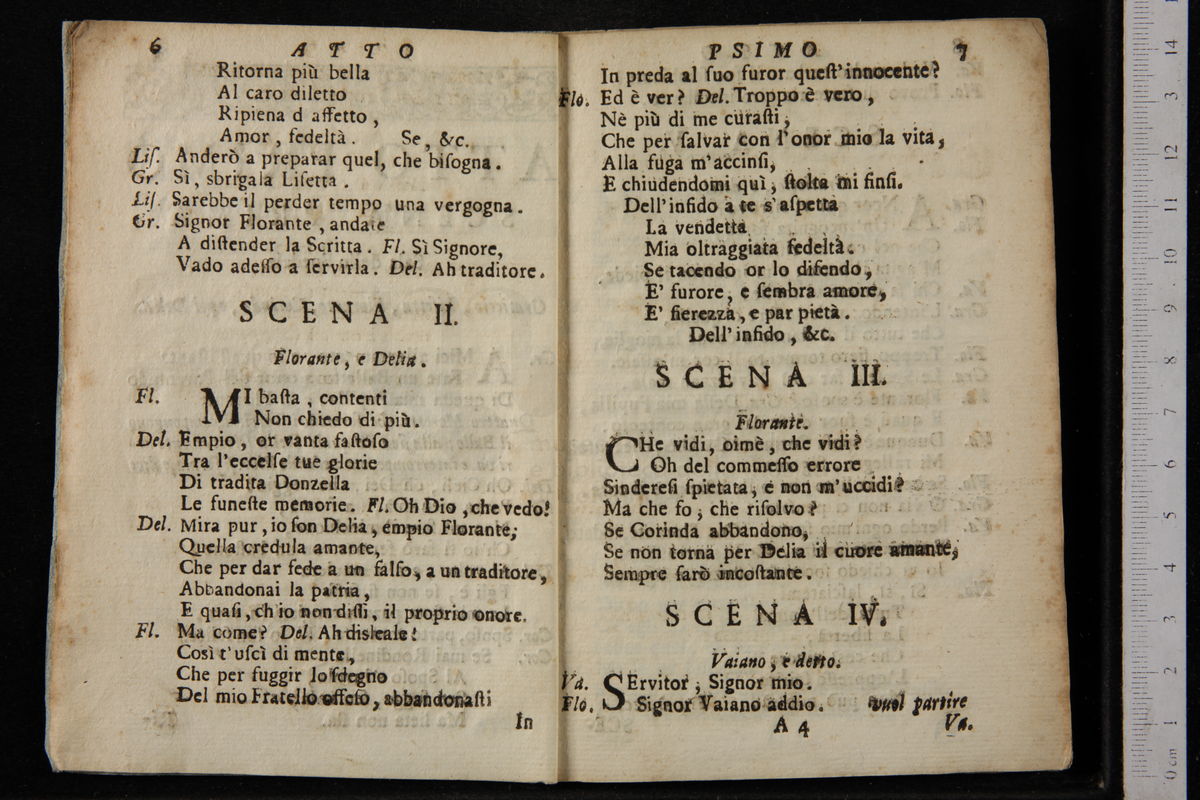 6 ATTO
Ritorna più bella
Al caro diletto
Ripiena d affetto,
Amor, fedeltà. Se, &c.
Liſ. Anderò a preparar quel, che biſogna.
Gr. Sì, sbrigala Liſetta.
Liſ. Sarebbe il perder tempo una vergogna.
Gr. Signor Florante, andate
A diſtender la Scritta. Fl. Sì Signore,
Vado adeſſo a ſervirla. Del. Ah traditore.
SCENA II.
Florante, e Delia.
Fl. MI baſta, contenti
Non chiedo di più.
Del. Empio, or vanta faſtoſo
Tra l'eccelſe tue glorie
Di tradita Donzella
Le funeſte memorie. Fl. Oh Dio, che vedo!
Del. Mira pur, io ſon Delia, empio Florante;
Quella credula amante,
Che per dar fede a un falſo, a un traditore,
Abbandonai la patria,
E quaſi, ch io non diſſi, il proprio onore.
Fl. Ma come? Del. Ah disleale!
Così t'uſcì di mente,
Che per fuggir lo ſdegno
Del mio Fratello offeſo, abbandonaſti
In
PSIMO 7
In preda al ſuo furor queſt'innocente?
Flo. Ed è ver? Del. Troppo è vero,
Nè più di me curaſti,
Che per ſalvar con l'onor mio la vita,
Alla fuga m'accinſi,
E chiudendomi quì, ſtolta mi finſi.
Dell'infido a te s'aſpetta
La vendetta
Mia oltraggiata fedeltà.
Se tacendo or lo difendo,
E' furore, e ſembra amore,
E' fierezza, e par pietà.
Dell'infido, &c.
SCENA III.
Florante.
CHe vidi, oimè, che vidi?
Oh del commeſſo errore
Sindereſi ſpietata, e non m'uccidi?
Ma che fo, che riſolvo?
Se Corinda abbandono,
Se non torna per Delia il cuore amante,
Sempre farò incoſtante.
SCENA IV.
Vaiano, e detto.
Va. SErvitor, Signor mio.
Flo. Signor Vaiano addio. vuol partire
A 4 Va.
14
13
12
11
10
9
8
7
6
5
4
3
2
1
0 cm